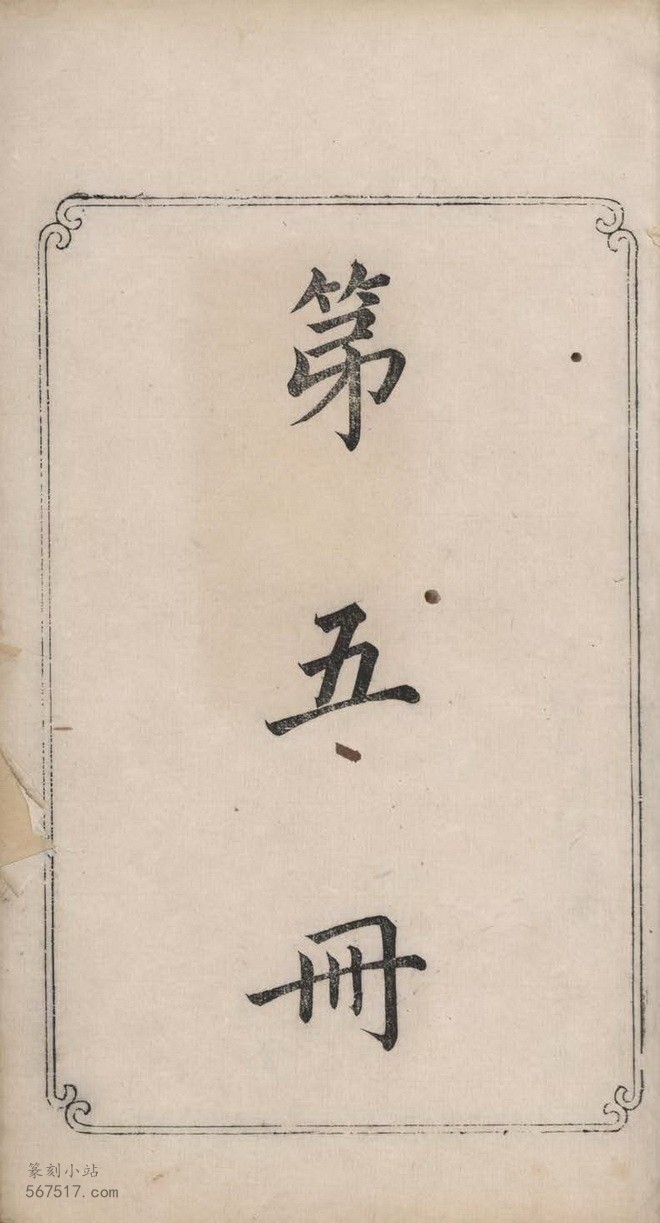 第五冊
篆刻小站
567517.com